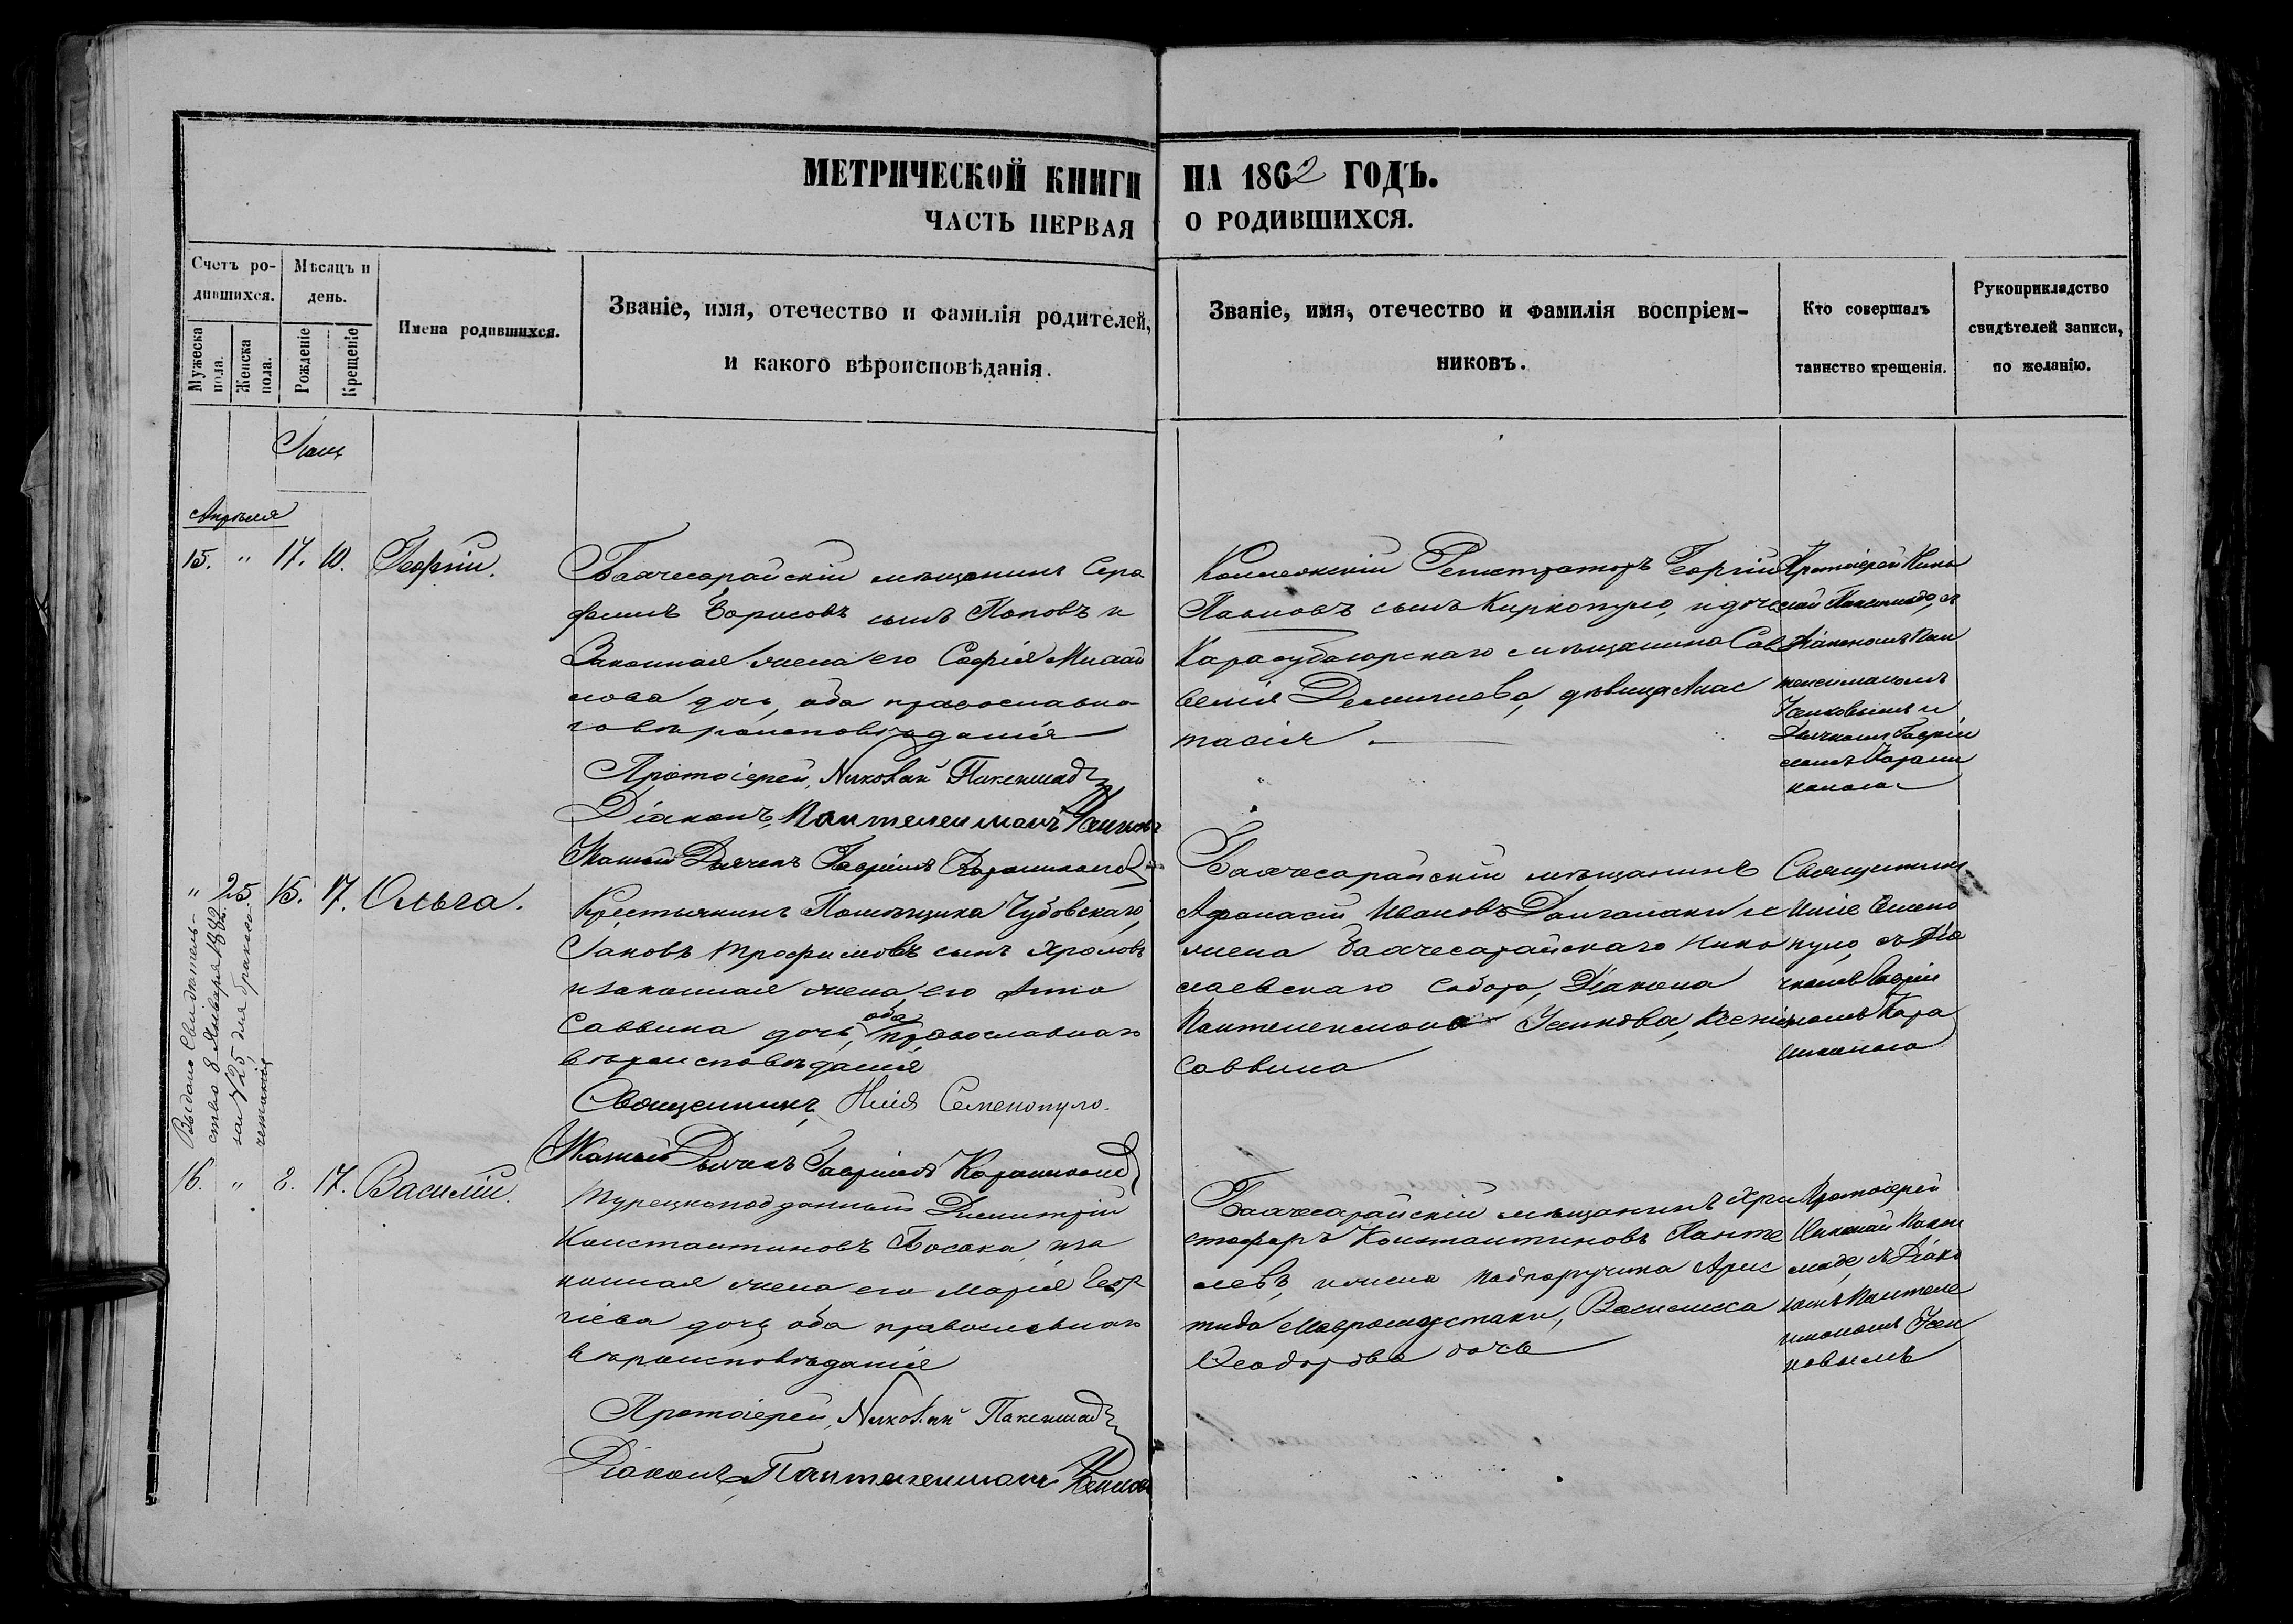 МЕТРИЧЕСКОЙ КНИГИ НА 1862 ГОДЪ.
ЧАСТЬ ПЕРВАЯ О РОДИВШИХСЯ.
Счетъ ро-
дившихся.
Мужеска
пола.
Женска
пола.
Мѣсяцъ и
день.
Рожденіе
Крещеніе
Имена родившихся.
Званіе, имя, отечество и фамилія родителей,
и какого вѣроисповѣданія.
Званіе, имя, отечество и фамилія воспріем-
никовъ.
Кто совершалъ
таинство крещенія.
Рукоприкладство
свидѣтелей записи,
по желанію.
Маи
Апрѣля
15. " 17. 10. Георгій.
Бахчесарайскій мѣщанинъ Сера
фимъ Борисовъ сынъ Поповъ и
Законная жена его Софія Михаи
лова дочь, оба православна
го вѣроисповѣданія
Протоіерей, Николай Пакекшадъ
Діаконъ, Пантелеимонъ
Дьячекъ Гавріилъ
Коллежскій Регистраторъ Георгій
Павловъ сынъ Киркопуло, и дочь
Карасубазарскаго мѣщанина Сав
велія Демичева, дѣвица Анас
тасія
Протоіерей Нико
лай Пакекшадъ, съ
Діакономъ Пан
телеимономъ
и
Дьячкомъ Гаврі
иломъ
" 25. 15. 17. Ольга.
Выдано Свидѣтель-
ство 8 Января 1882 г.
за № 25, для бракосо-
четанія
Крестьянинъ Помѣщика Чудовскаго,
Іаковъ Трофимовъ сынъ Хромовъ
и законная жена его Анна
Саввина дочь, оба православнаго
вѣроисповѣданія
Священникъ, Илія Семенопуло.
Дьячекъ Гавріилъ
Бахчесарайскій мѣщанинъ
Афанасій Ивановъ и
жена Бахчесарайскаго Нико
лаевскаго Собора, Діакона
Пантелеимона Ксенія
Саввина
Священникъ
Илія Семено
пуло, съ Дья
чкомъ Гаврі
иломъ
16. " 8. 17. Василій.
Турецкоподданный Димитрій
Константиновъ Босака, и за
конная жена его Марія Геор
гіева дочь оба православнаго
вѣроисповѣданія
Протоіерей, Николай Пакекшадъ
Діаконъ, Пантелеимонъ
Бахчесарайскій мѣщанинъ Хри
стофоръ Константиновъ Панте
леевъ, и жена Подпоручика Арис
тида Мавромустаки, Василисса
Ѳеодорова дочь
Протоіерей
Николай Пакек
шадъ, съ Діако
номъ Пантеле
имономъ